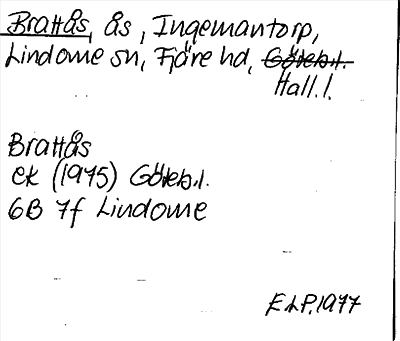 Brattås, ås, Ingemantorp,
Lindome sn, Fjäre hd, Göteb.l.
Hall.l.
Brattås
ek (1975) Göteb.l.
6B 7f Lindome
ELP.1977